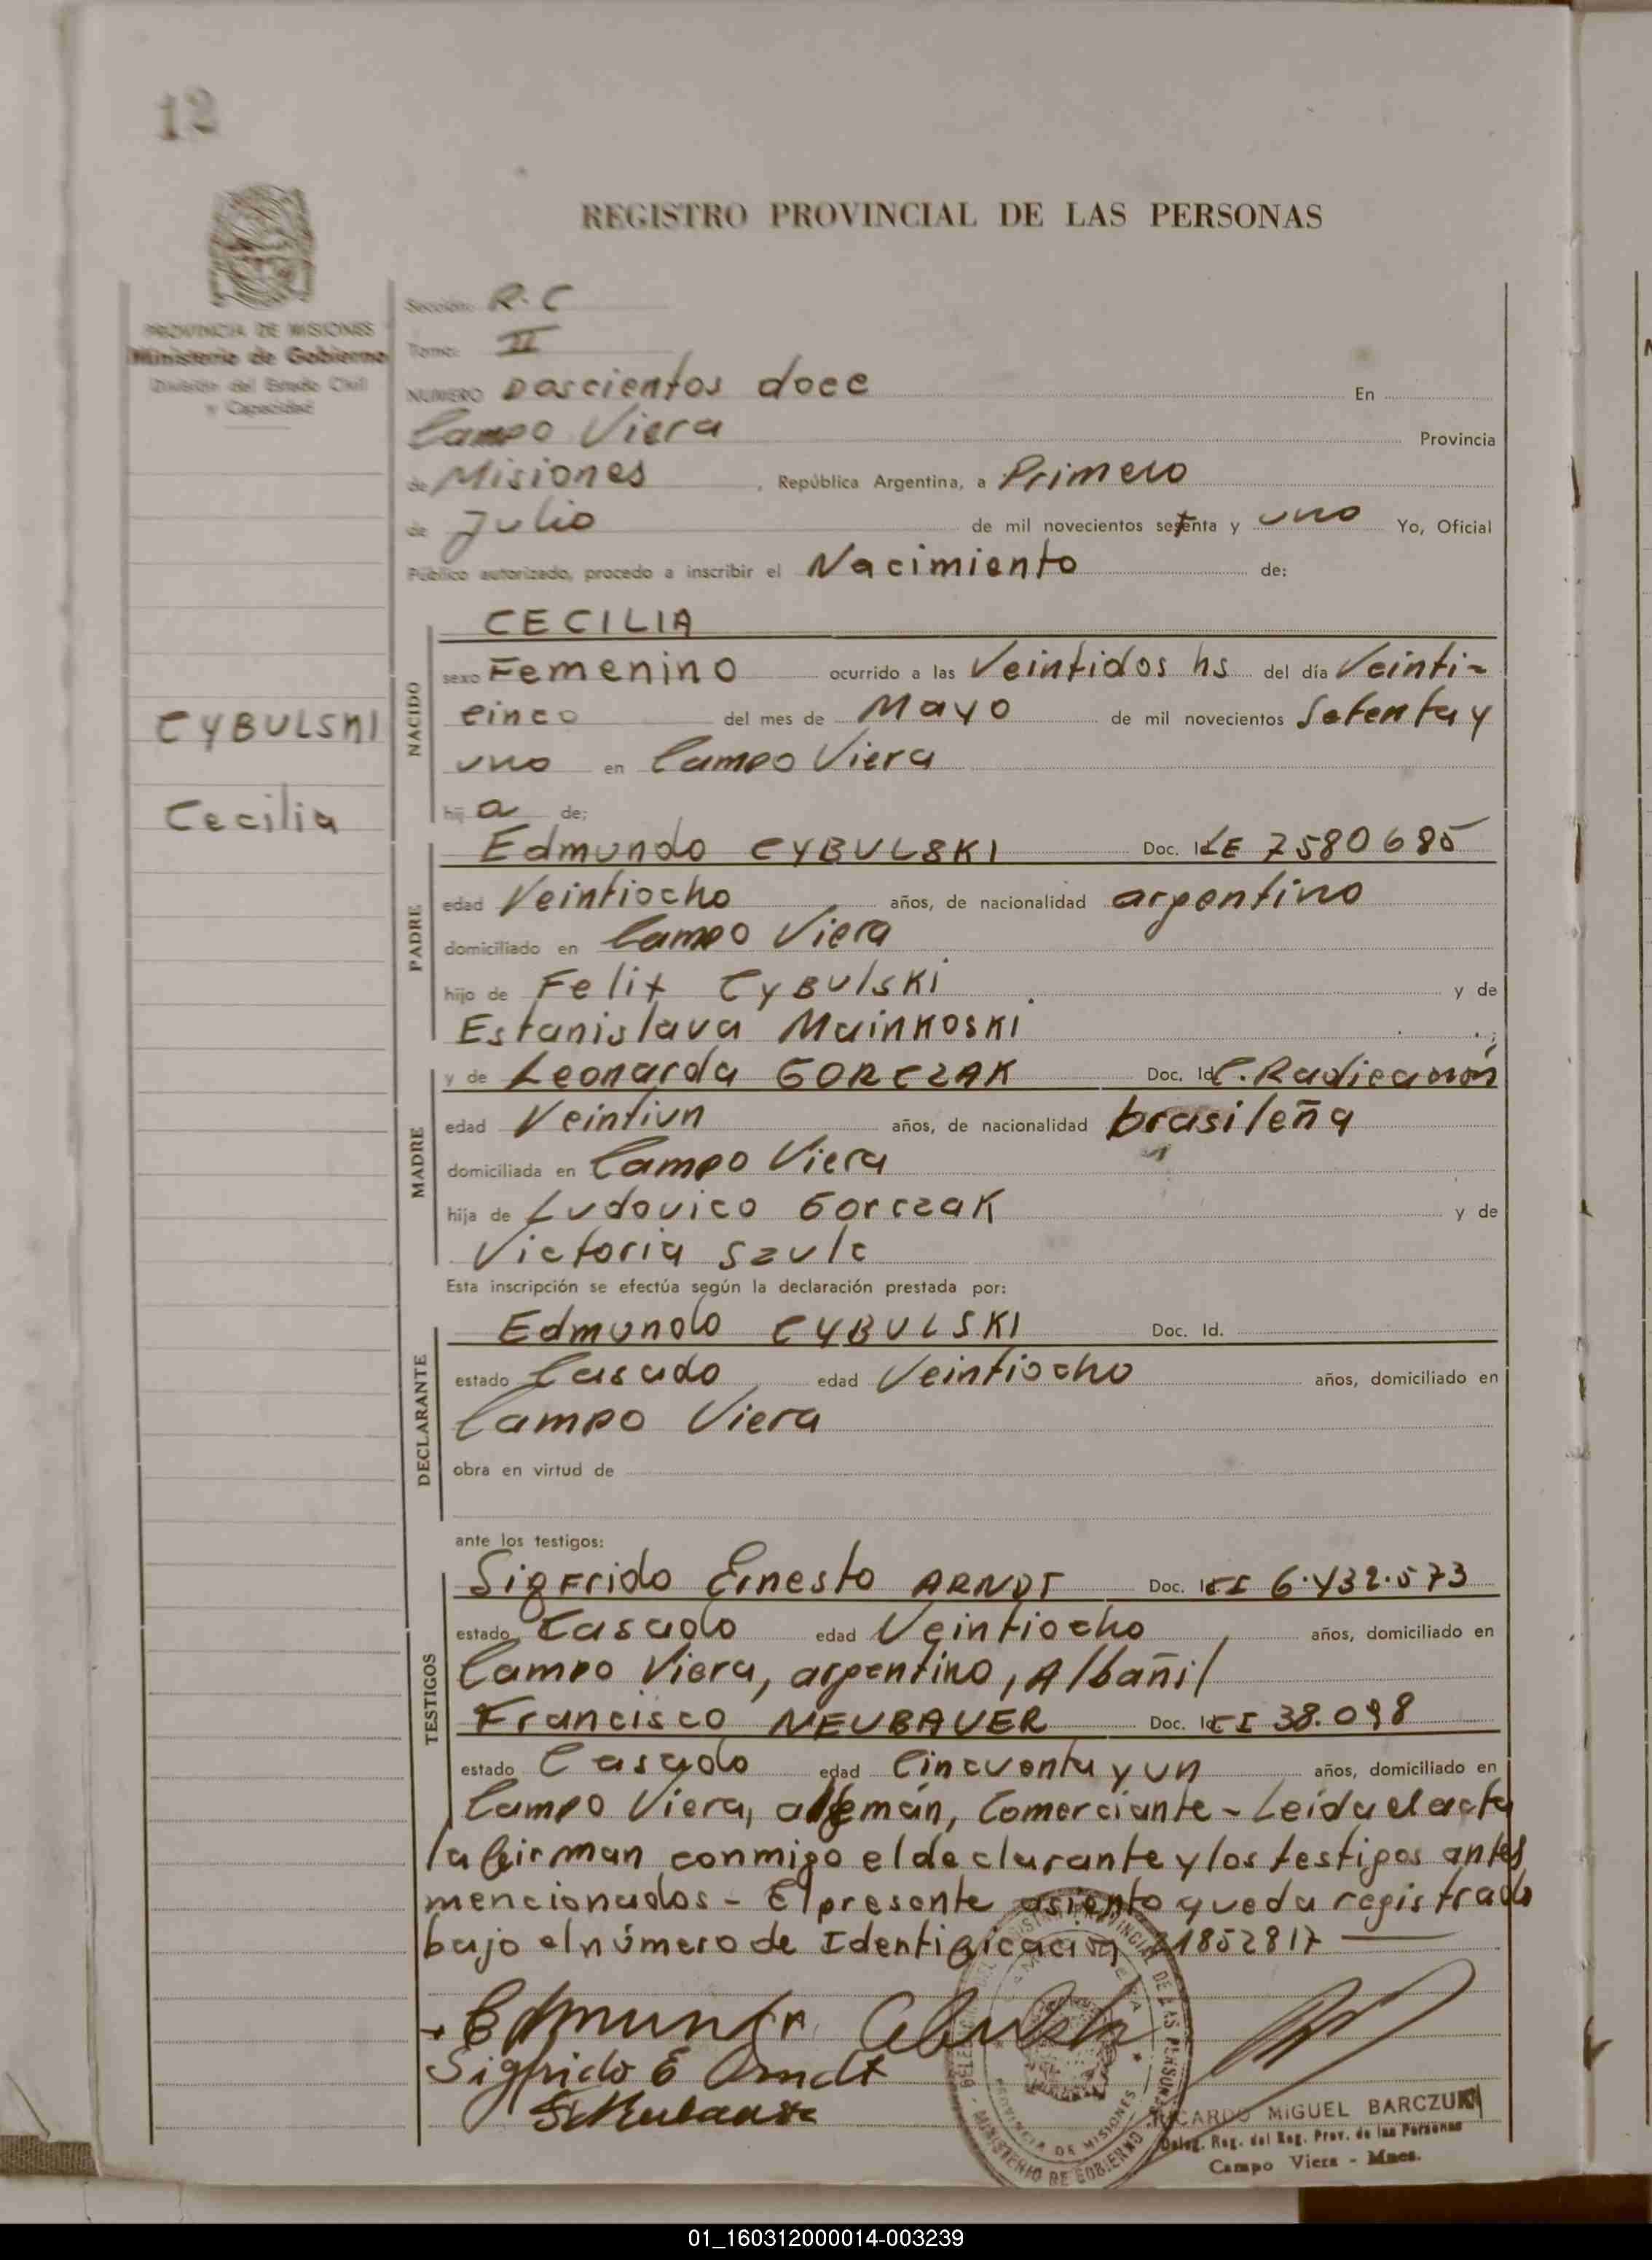 12
REGISTRO PROVINCIAL DE LAS PERSONAS
PROVINCIA DE MISIONES
Ministerio de Gobierno
División del Estado Civil
y Capacidad
Sección: R.C
Tomo: II
NUMERO Doscientos doce En
Campo Viera Provincia
de Misiones, República Argentina, a Primero
de Julio de mil novecientos setenta y uno Yo, Oficial
Público autorizado, procedo a inscribir el Nacimiento de:
CYBULSKI
Cecilia
NACIDO
CECILIA
sexo Femenino ocurrido a las Veintidos hs del día Veinti-
cinco del mes de Mayo de mil novecientos Setenta y
uno en Campo Viera
hij a de:
PADRE
Edmundo CYBULSKI Doc. Id LE 7580685
edad Veintiocho años, de nacionalidad argentino
domiciliado en Campo Viera
hijo de Felix CYBULSKI y de
Estanislava Mainkoski
MADRE
y de Leonarda GORCZAK Doc. Id C. Radicación
edad Veintiun años, de nacionalidad brasileña
domiciliada en Campo Viera
hija de Ludovico Gorczak y de
Victoria Szulc
Esta inscripción se efectúa según la declaración prestada por:
DECLARANTE
Edmundo CYBULSKI Doc. Id.
estado Casado edad Veintiocho años, domiciliado en
Campo Viera
obra en virtud de
ante los testigos:
TESTIGOS
Sigfrido Ernesto ARNDT Doc. Id CI 6.432.573
estado Casado edad Veintiocho años, domiciliado en
Campo Viera, argentino, Albañil
Francisco NEUBAUER Doc. Id CI 38.098
estado Casado edad Cincuenta y un años, domiciliado en
Campo Viera, alemán, Comerciante - Leida el acta
la firman conmigo el declarante y los testigos antes
mencionados - El presente asiento queda registrado
bajo el número de Identificación 21852817
Edmundo
Sigfrido E Arndt
RICARDO MIGUEL BARCZUK
Deleg. Reg. del Reg. Prov. de las Personas
Campo Viera - Mnes.
PROVINCIA DE MISIONES
MINISTERIO DE GOBIERNO
01_160312000014-003239